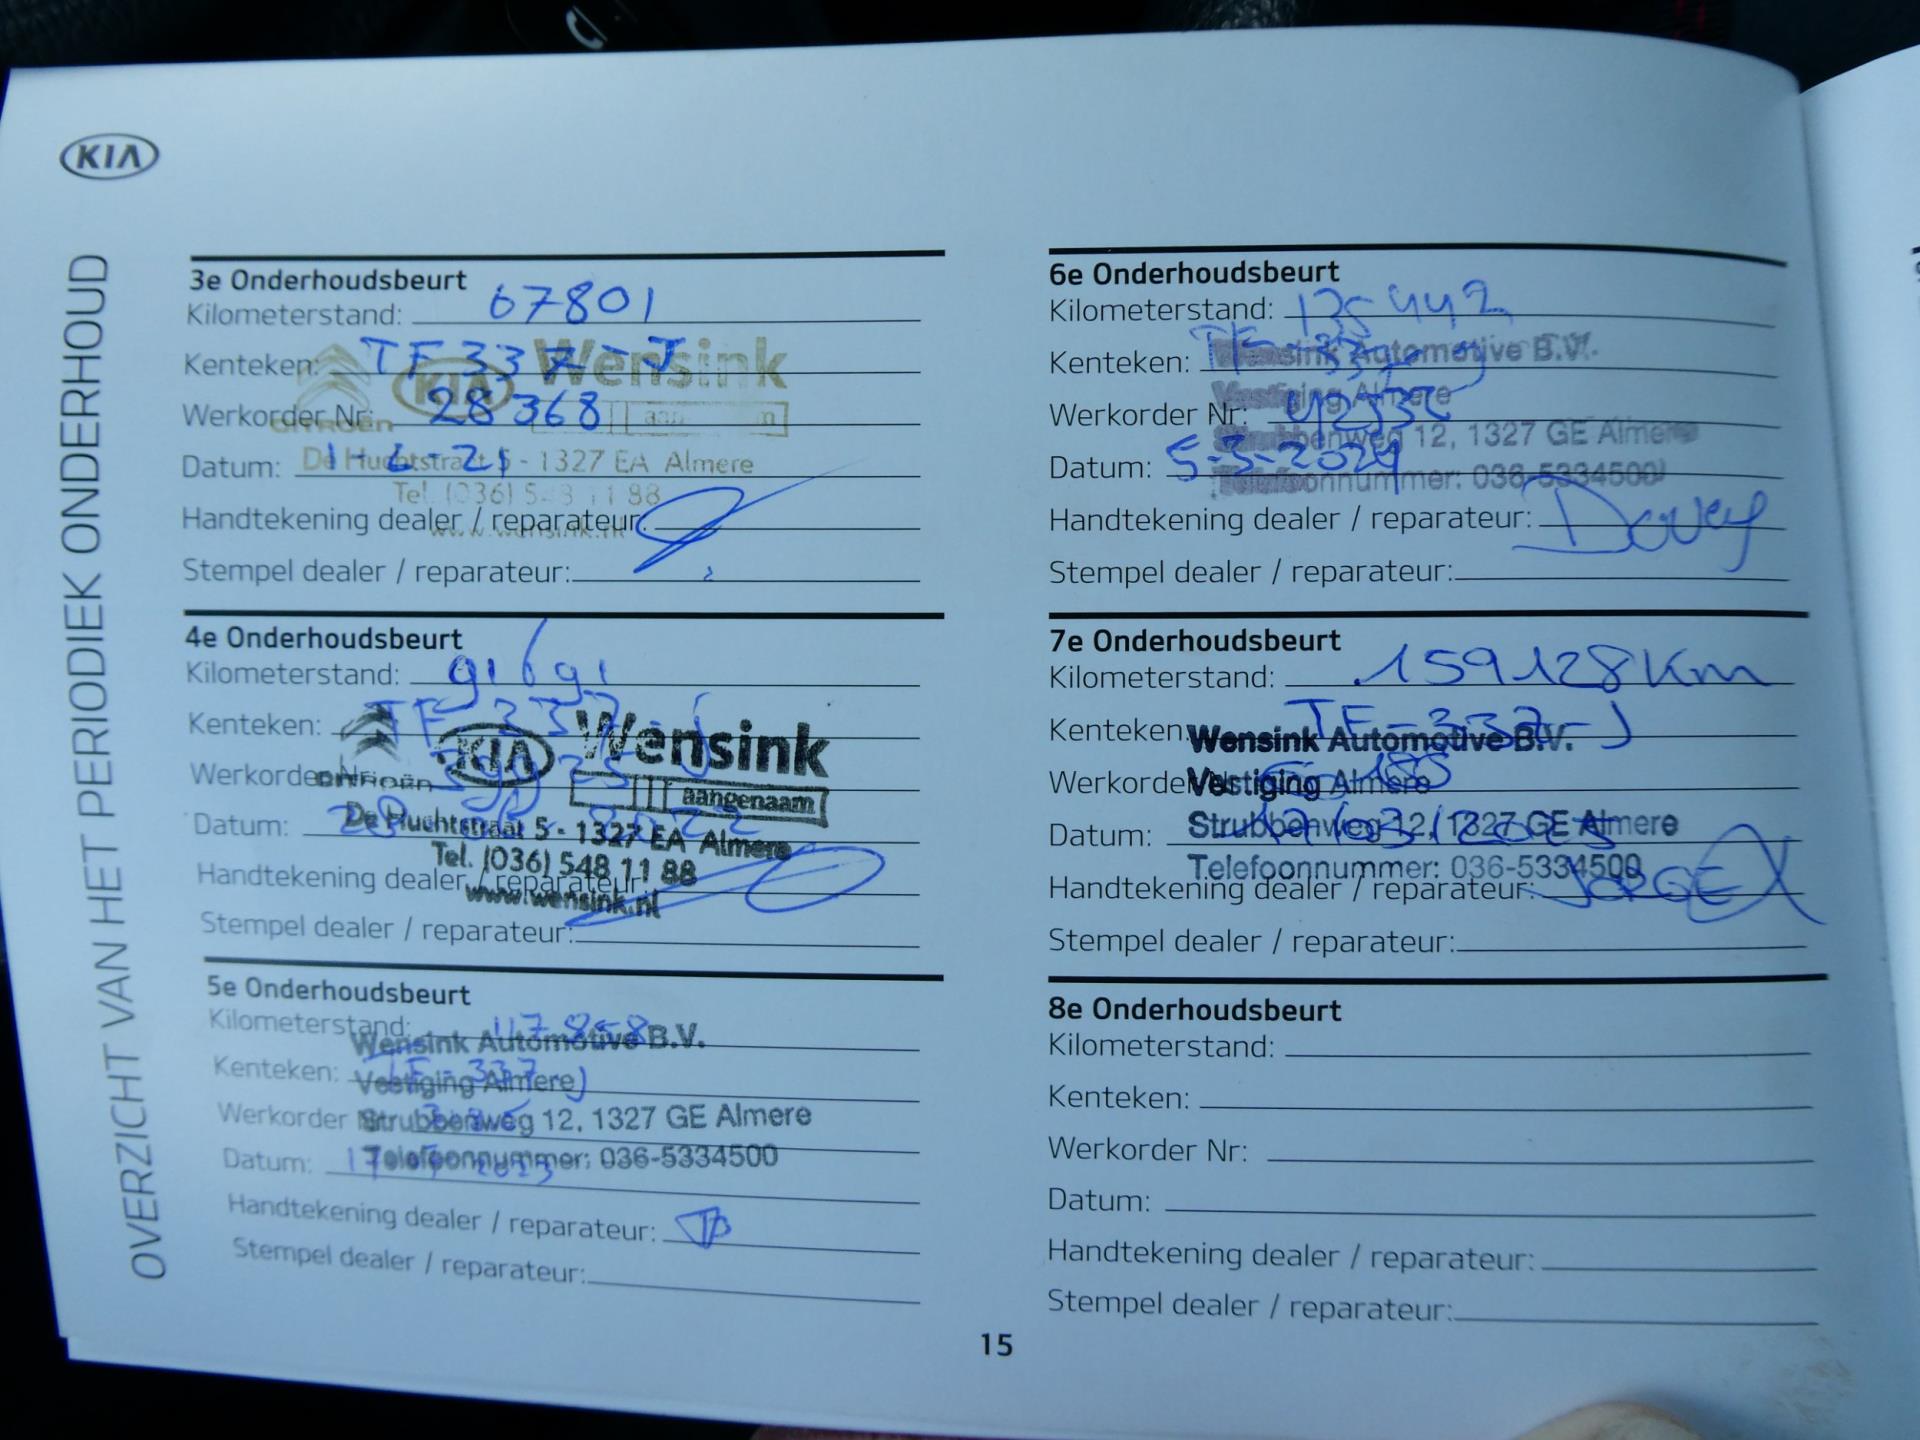 KIA
OVERZICHT VAN HET PERIODIEK ONDERHOUD
3e Onderhoudsbeurt
Kilometerstand: 67801
Kenteken: TF 337-J
Werkorder Nr: 28368
Datum: 1-6-21
Handtekening dealer / reparateur:
Stempel dealer / reparateur:
CITROËN KIA Wensink
De Huchtstraat 5 - 1327 EA Almere
Tel. (036) 548 11 88
www.wensink.nl
4e Onderhoudsbeurt
Kilometerstand: 91691
Kenteken: TF 337-J
Werkorder Nr:
Datum: 2022
Handtekening dealer / reparateur:
Stempel dealer / reparateur:
CITROËN KIA Wensink
aangenaam
De Huchtstraat 5 - 1327 EA Almere
Tel. (036) 548 11 88
www.wensink.nl
5e Onderhoudsbeurt
Kilometerstand: 117858
Kenteken: TF-337-J
Werkorder Nr:
Datum: 17 2023
Handtekening dealer / reparateur:
Stempel dealer / reparateur:
Wensink Automotive B.V.
Vestiging Almere
Strubbenweg 12, 1327 GE Almere
Telefoonnummer: 036-5334500
6e Onderhoudsbeurt
Kilometerstand: 135442
Kenteken: TF-337-J
Werkorder Nr:
Datum: 5-3-2024
Handtekening dealer / reparateur: Davey
Stempel dealer / reparateur:
Wensink Automotive B.V.
Vestiging Almere
Strubbenweg 12, 1327 GE Almere
Telefoonnummer: 036-5334500
7e Onderhoudsbeurt
Kilometerstand: 159128 Km
Kenteken: TF-337-J
Werkorder Nr:
Datum: /03/2025
Handtekening dealer / reparateur: JORGE
Stempel dealer / reparateur:
Wensink Automotive B.V.
Vestiging Almere
Strubbenweg 12, 1327 GE Almere
Telefoonnummer: 036-5334500
8e Onderhoudsbeurt
Kilometerstand:
Kenteken:
Werkorder Nr:
Datum:
Handtekening dealer / reparateur:
Stempel dealer / reparateur:
15